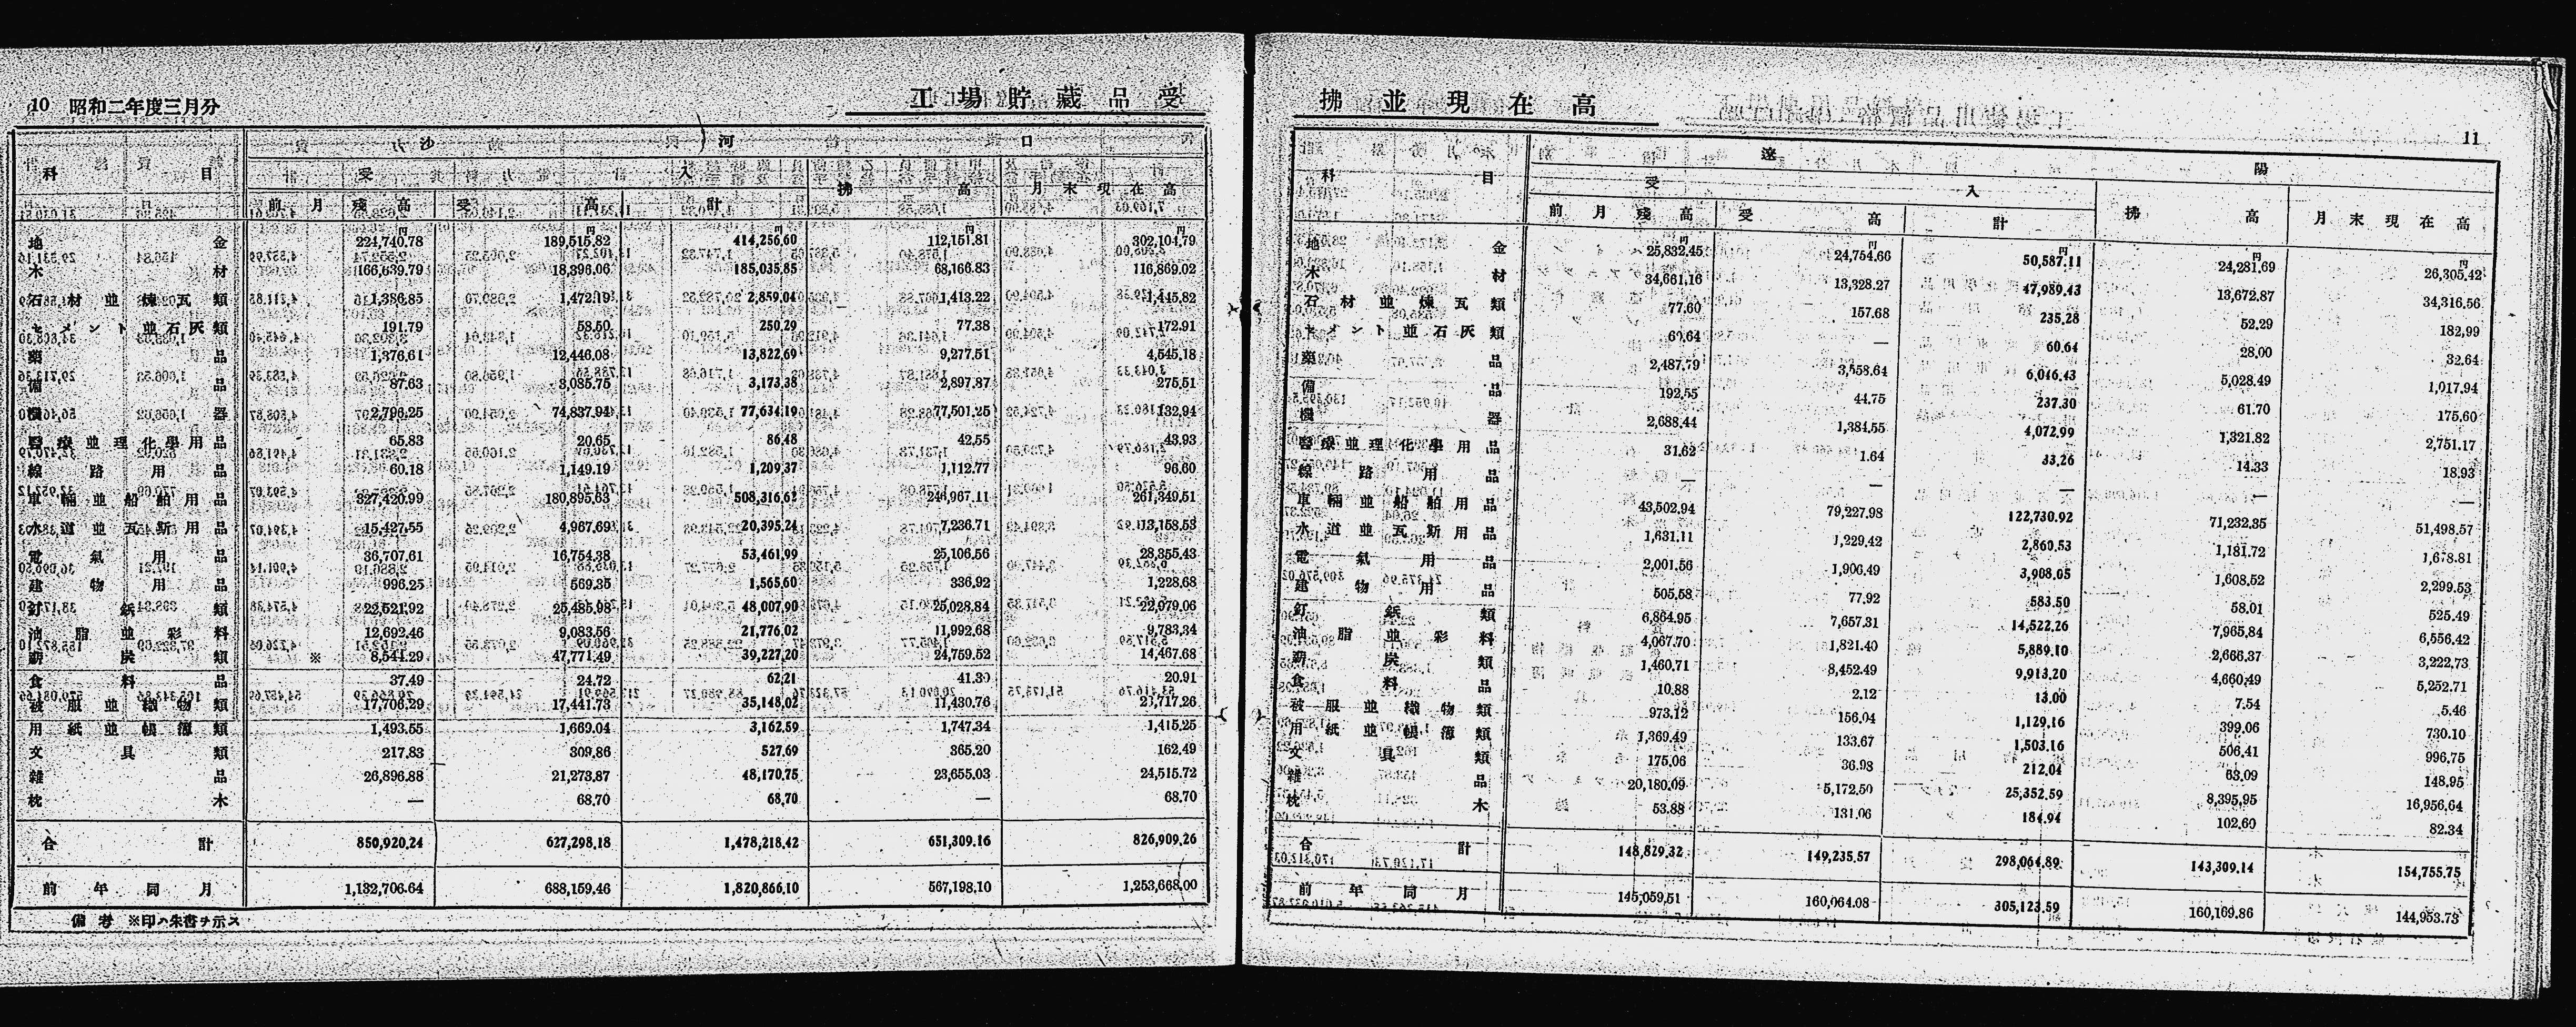 10 昭和二年度三月分
工場貯藏品受
科目 沙河口
受入 拂高 月末現在高
前月殘高 受高 計
地金 224,740.78 189,515.82 414,256.60 112,151.81 302,104.79
木材 166,639.79 18,396.06 185,035.85 68,166.83 116,869.02
石材並煉瓦類 1,386.85 1,472.19 2,859.04 1,413.22 1,445.82
セメント並石灰類 191.79 58.50 250.29 77.38 172.91
藥品 1,376.61 12,446.08 13,822.69 9,277.51 4,545.18
備品 87.63 3,085.75 3,173.38 2,897.87 275.51
機器 2,796.25 74,837.94 77,634.19 77,501.25 132.94
醫療並理化學用品 65.83 20.65 86.48 42.55 43.93
線路用品 60.18 1,149.19 1,209.37 1,112.77 96.60
車輛並船舶用品 327,420.99 180,895.63 508,316.62 246,967.11 261,349.51
水道並瓦斯用品 15,427.55 4,967.69 20,395.24 7,236.71 13,158.53
電氣用品 36,707.61 16,754.38 53,461.99 25,106.56 28,355.43
建物用品 996.25 569.35 1,565.60 336.92 1,228.68
釘鋲類 22,521.92 25,485.98 48,007.90 25,028.84 22,979.06
油脂並彩料 12,692.46 9,083.56 21,776.02 11,992.68 9,783.34
薪炭類 ※ 8,544.29 47,771.49 39,227.20 24,759.52 14,467.68
食料品 37.49 24.72 62.21 41.30 20.91
被服並織物類 17,706.29 17,441.73 35,148.02 11,430.76 23,717.26
用紙並帳簿類 1,493.55 1,669.04 3,162.59 1,747.34 1,415.25
文具類 217.83 309.86 527.69 365.20 162.49
雜品 26,896.88 21,273.87 48,170.75 23,655.03 24,515.72
枕木 — 68.70 68.70 — 68.70
合計 850,920.24 627,298.18 1,478,218.42 651,309.16 826,909.26
前年同月 1,132,706.64 688,159.46 1,820,866.10 567,198.10 1,253,668.00
備考 ※印ハ朱書ヲ示ス
拂並現在高
11
科目 遼陽
受入 拂高 月末現在高
前月殘高 受高 計
地金 25,832.45 24,754.66 50,587.11 24,281.69 26,305.42
木材 34,661.16 13,328.27 47,989.43 13,672.87 34,316.56
石材並煉瓦類 77.60 157.68 235.28 52.29 182.99
セメント並石灰類 60.64 — 60.64 28.00 32.64
藥品 2,487.79 3,558.64 6,046.43 5,028.49 1,017.94
備品 192.55 44.75 237.30 61.70 175.60
機器 2,688.44 1,384.55 4,072.99 1,321.82 2,751.17
醫療並理化學用品 31.62 1.64 33.26 14.33 18.93
線路用品 — — — — —
車輛並船舶用品 43,502.94 79,227.98 122,730.92 71,232.35 51,498.57
水道並瓦斯用品 1,631.11 1,229.42 2,860.53 1,181.72 1,678.81
電氣用品 2,001.56 1,906.49 3,908.05 1,608.52 2,299.53
建物用品 505.58 77.92 583.50 58.01 525.49
釘鋲類 6,864.95 7,657.31 14,522.26 7,965.84 6,556.42
油脂並彩料 4,067.70 1,821.40 5,889.10 2,666.37 3,222.73
薪炭類 1,460.71 8,452.49 9,913.20 4,660.49 5,252.71
食料品 10.88 2.12 13.00 7.54 5.46
被服並織物類 973.12 156.04 1,129.16 399.06 730.10
用紙並帳簿類 1,369.49 133.67 1,503.16 506.41 996.75
文具類 175.06 36.98 212.04 63.09 148.95
雜品 20,180.09 5,172.50 25,352.59 8,395.95 16,956.64
枕木 53.88 131.06 184.94 102.60 82.34
合計 148,829.32 149,235.57 298,064.89 143,309.14 154,755.75
前年同月 145,059.51 160,064.08 305,123.59 160,169.86 144,953.73